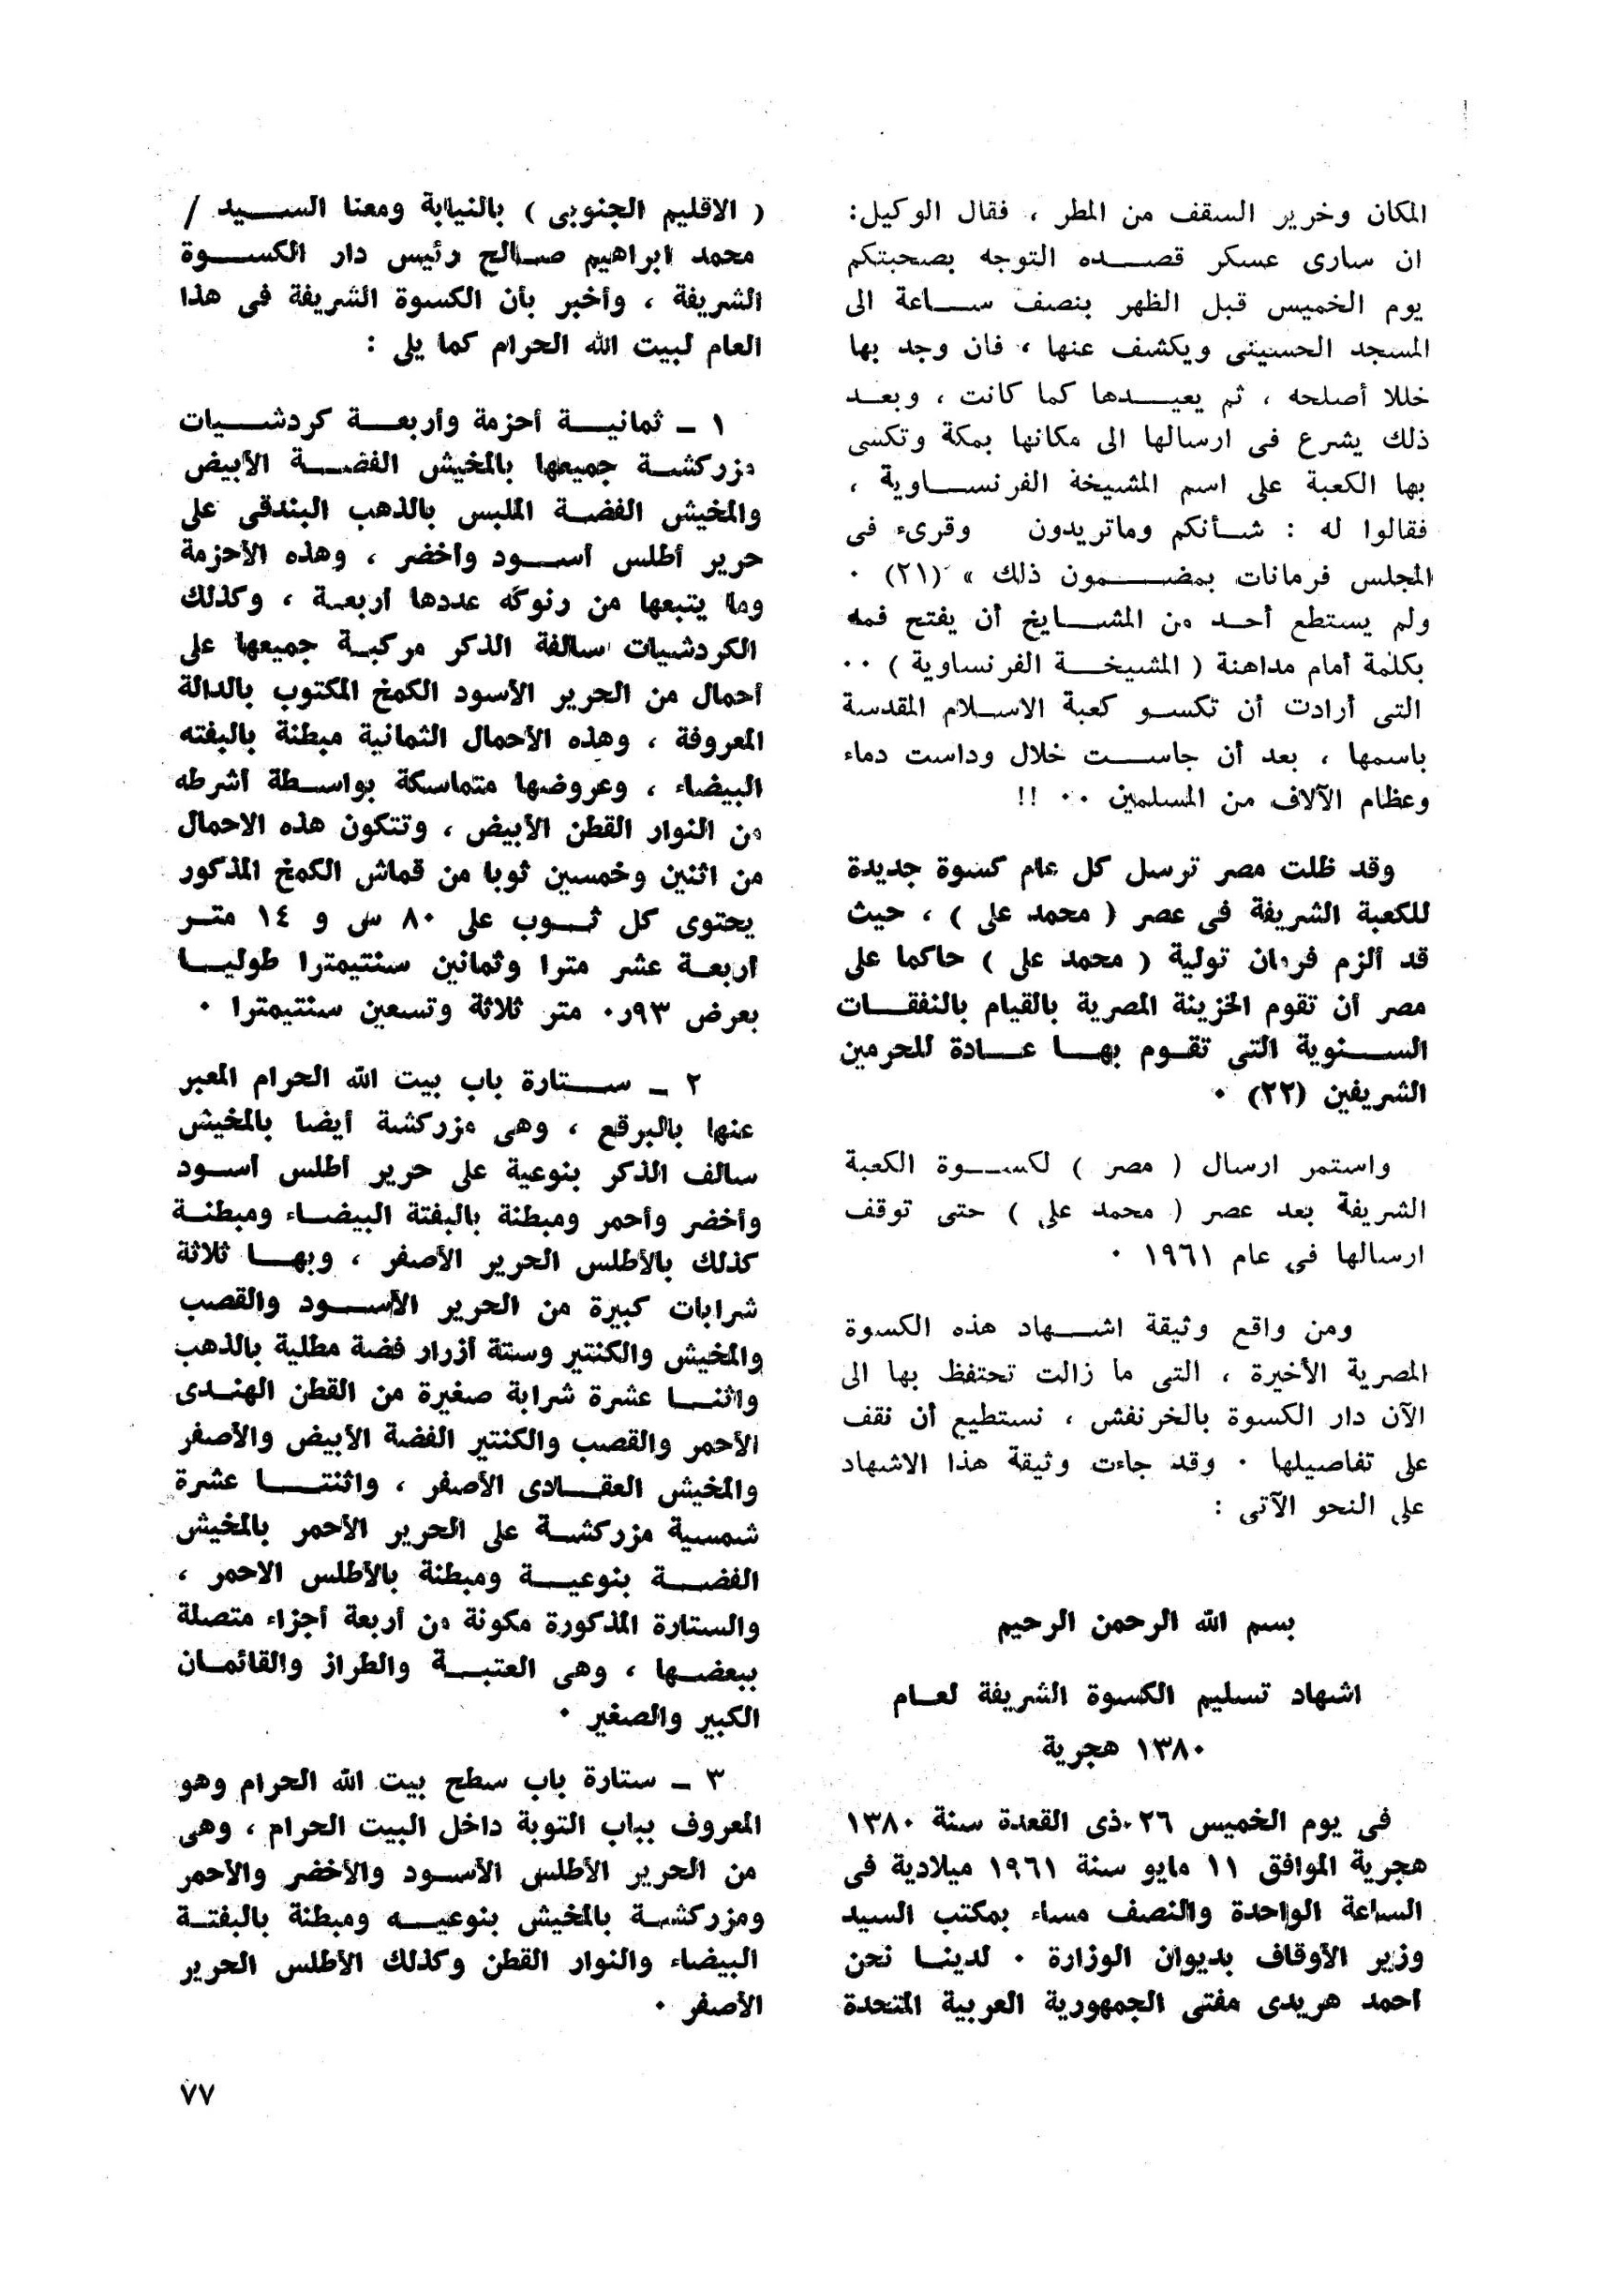 المكان وخرير السقف من المطر ، فقال الوكيل:
ان سارى عسكر قصده التوجه بصحبتكم
يوم الخميس قبل الظهر بنصف ساعة الى
المسجد الحسينى ويكشف عنها ، فان وجد بها
خللا أصلحه ، ثم يعيدها كما كانت ، وبعد
ذلك يشرع فى ارسالها الى مكانها بمكة وتكسى
بها الكعبة على اسم المشيخة الفرنساوية ،
فقالوا له : شأنكم وماتريدون وقرىء فى
المجلس فرمانات بمضمون ذلك » (٢١) ٠
ولم يستطع أحد من المشايخ أن يفتح فمه
بكلمة أمام مداهنة ( المشيخة الفرنساوية ) ٠٠
التى أرادت أن تكسو كعبة الاسلام المقدسة
باسمها ، بعد أن جاست خلال وداست دماء
وعظام الآلاف من المسلمين ٠٠ !!
وقد ظلت مصر ترسل كل عام كسوة جديدة
للكعبة الشريفة فى عصر ( محمد على ) ، حيث
قد ألزم فرمان تولية ( محمد على ) حاكما على
مصر أن تقوم الخزينة المصرية بالقيام بالنفقات
السنوية التى تقوم بها عادة للحرمين
الشريفين (٢٢) ٠
واستمر ارسال ( مصر ) لكسوة الكعبة
الشريفة بعد عصر ( محمد على ) حتى توقف
ارسالها فى عام ١٩٦١ ٠
ومن واقع وثيقة اشهاد هذه الكسوة
المصرية الأخيرة ، التى ما زالت تحتفظ بها الى
الآن دار الكسوة بالخرنفش ، نستطيع أن نقف
على تفاصيلها ٠ وقد جاءت وثيقة هذا الاشهاد
على النحو الآتى :
بسم الله الرحمن الرحيم
اشهاد تسليم الكسوة الشريفة لعام
١٣٨٠ هجرية
فى يوم الخميس ٢٦ ذى القعدة سنة ١٣٨٠
هجرية الموافق ١١ مايو سنة ١٩٦١ ميلادية فى
الساعة الواحدة والنصف مساء بمكتب السيد
وزير الأوقاف بديوان الوزارة ٠ لدينا نحن
احمد هريدى مفتى الجمهورية العربية المتحدة
( الاقليم الجنوبى ) بالنيابة ومعنا السيد /
محمد ابراهيم صالح رئيس دار الكسوة
الشريفة ، وأخبر بأن الكسوة الشريفة فى هذا
العام لبيت الله الحرام كما يلى :
١ ــ ثمانية أحزمة وأربعة كردشيات
مزركشة جميعها بالمخيش الفضة الأبيض
والمخيش الفضة الملبس بالذهب البندقى على
حرير أطلس أسود وأخضر ، وهذه الأحزمة
وما يتبعها من رنوكه عددها أربعة ، وكذلك
الكردشيات سالفة الذكر مركبة جميعها على
أحمال من الحرير الأسود الكمخ المكتوب بالدالة
المعروفة ، وهذه الأحمال الثمانية مبطنة بالبفته
البيضاء ، وعروضها متماسكة بواسطة أشرطه
من النوار القطن الأبيض ، وتتكون هذه الاحمال
من اثنين وخمسين ثوبا من قماش الكمخ المذكور
يحتوى كل ثوب على ٨٠ س و ١٤ متر
أربعة عشر مترا وثمانين سنتيمترا طوليا
بعرض ٩٣ر٠ متر ثلاثة وتسعين سنتيمترا ٠
٢ ــ ستارة باب بيت الله الحرام المعبر
عنها بالبرقع ، وهى مزركشة أيضا بالمخيش
سالف الذكر بنوعية على حرير أطلس أسود
وأخضر وأحمر ومبطنة بالبفتة البيضاء ومبطنة
كذلك بالأطلس الحرير الأصفر ، وبها ثلاثة
شرابات كبيرة من الحرير الأسود والقصب
والمخيش والكنتير وستة أزرار فضة مطلية بالذهب
واثنا عشرة شرابة صغيرة من القطن الهندى
الأحمر والقصب والكنتير الفضة الأبيض والأصفر
والمخيش العقادى الأصفر ، واثنتا عشرة
شمسية مزركشة على الحرير الأحمر بالمخيش
الفضة بنوعية ومبطنة بالأطلس الاحمر ،
والستارة المذكورة مكونة من أربعة أجزاء متصلة
ببعضها ، وهى العتبة والطراز والقائمان
الكبير والصغير ٠
٣ ــ ستارة باب سطح بيت الله الحرام وهو
المعروف بباب التوبة داخل البيت الحرام ، وهى
من الحرير الأطلس الأسود والأخضر والأحمر
ومزركشة بالمخيش بنوعيه ومبطنة بالبفتة
البيضاء والنوار القطن وكذلك الأطلس الحرير
الأصفر ٠
٧٧